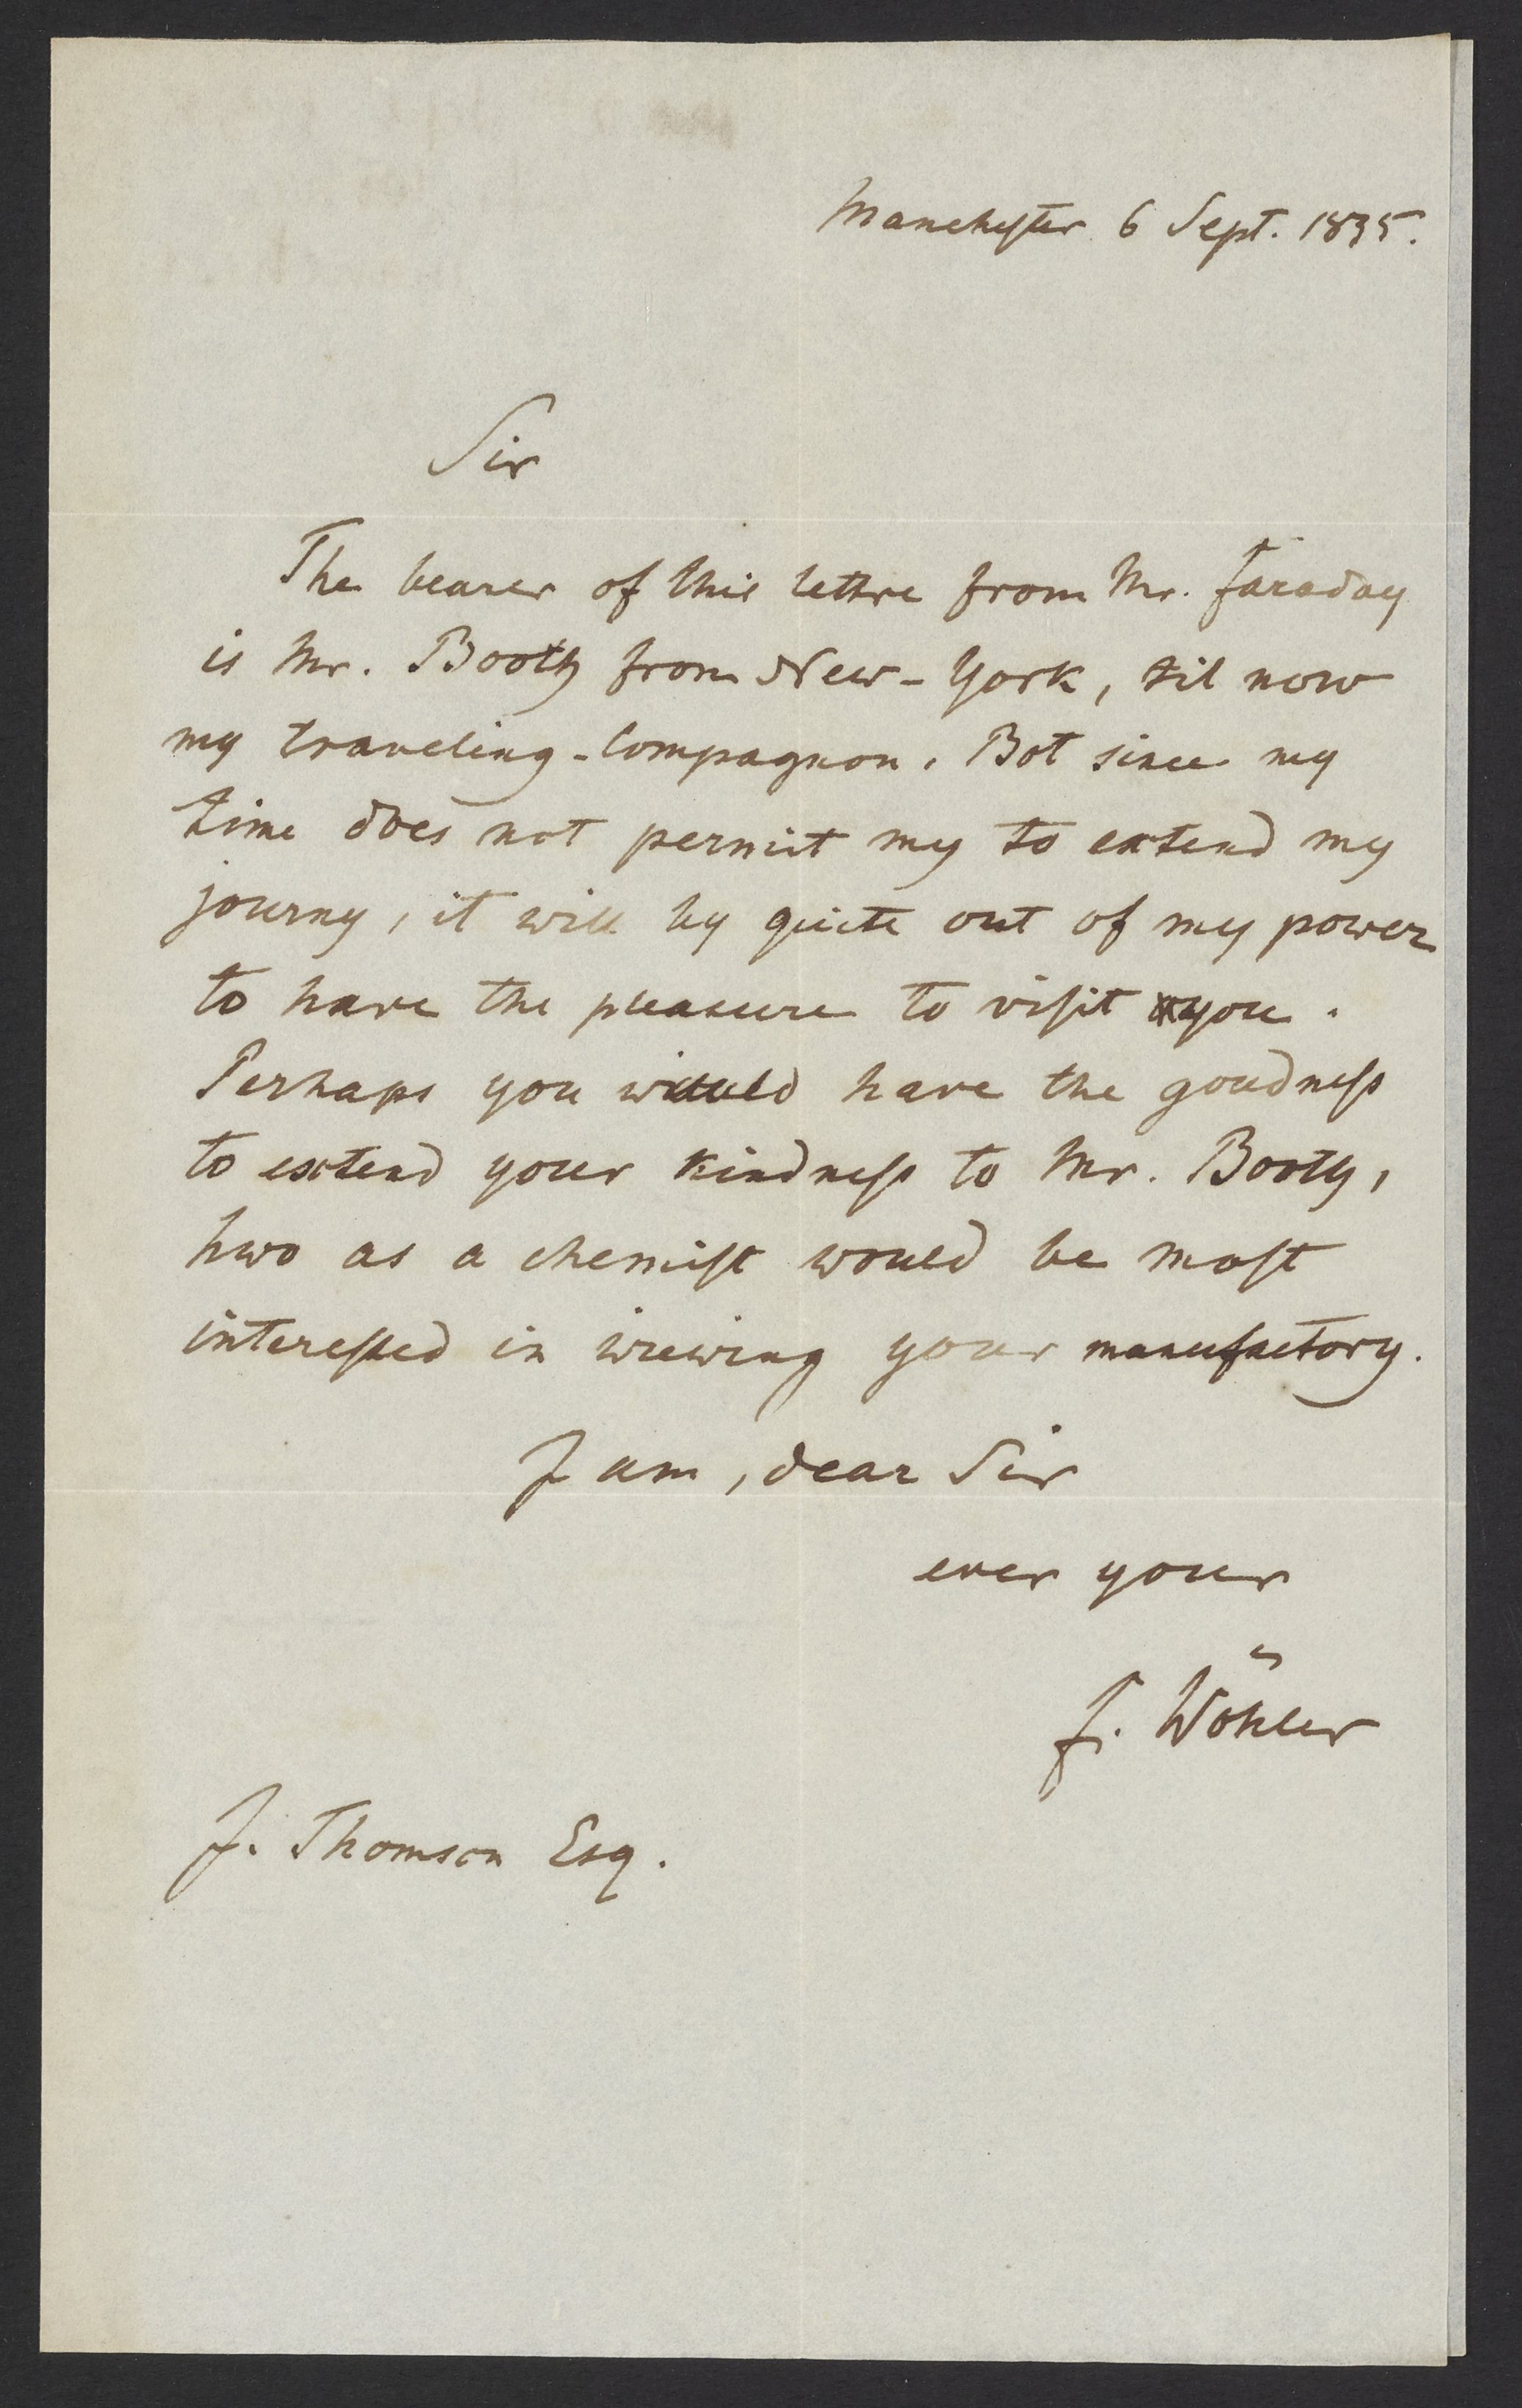 Manchester 6 Sept. 1835.
Sir
The bearer of this lettre from Mr. Faraday
is Mr. Booth from New-York, til now
my traveling-compagnon. Bot since my
time does not permit my to extend my
journy, it will by quite out of my power
to have the pleasure to visit you.
Perhaps you would have the goodness
to extend your kindness to Mr. Booth,
hwo as a chemist would be most
interested in wiewing your manufactory.
I am, dear Sir
ever your
F. Wöhler
J. Thomson Esq.